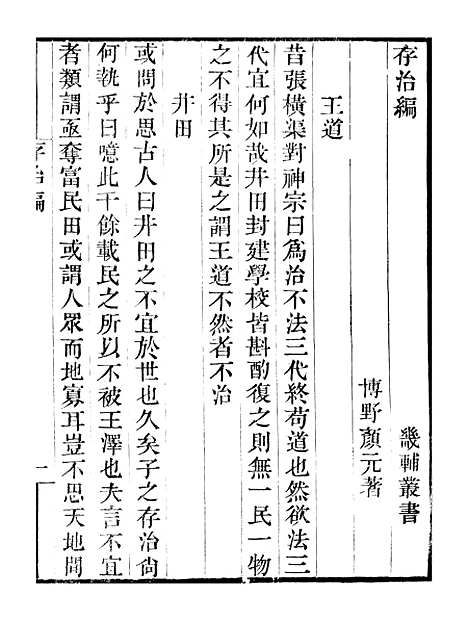 存治編
畿輔叢書
博野顏元著
王道
昔張橫渠對神宗曰為治不法三代終苟道也然欲法三
代宜何如哉井田封建學校皆斟酌復之則無一民一物
之不得其所是之謂王道不然者不治
井田
或問於思古人曰井田之不宜於世也久矣子之存治尙
何執乎曰噫此千餘載民之所以不被王澤也夫言不宜
者類謂亟奪富民田或謂人眾而地寡耳豈不思天地間
存治編
一